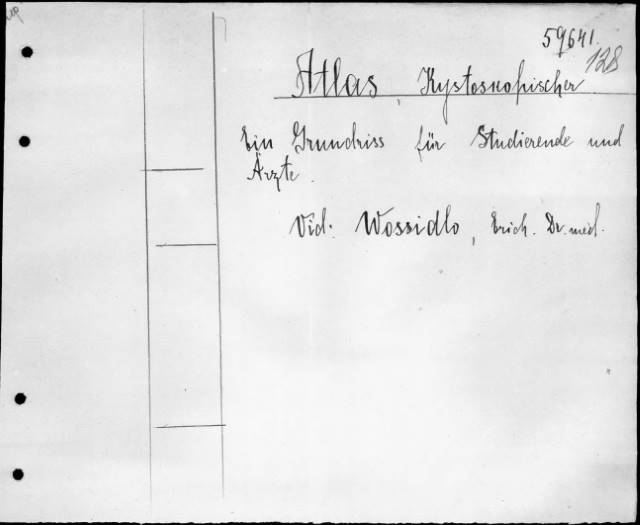 59641.
128
Atlas, Kystoskopischer
Ein Grundriss für Studierende und
Ärzte.
Vid. Wossidlo, Erich. Dr. med.